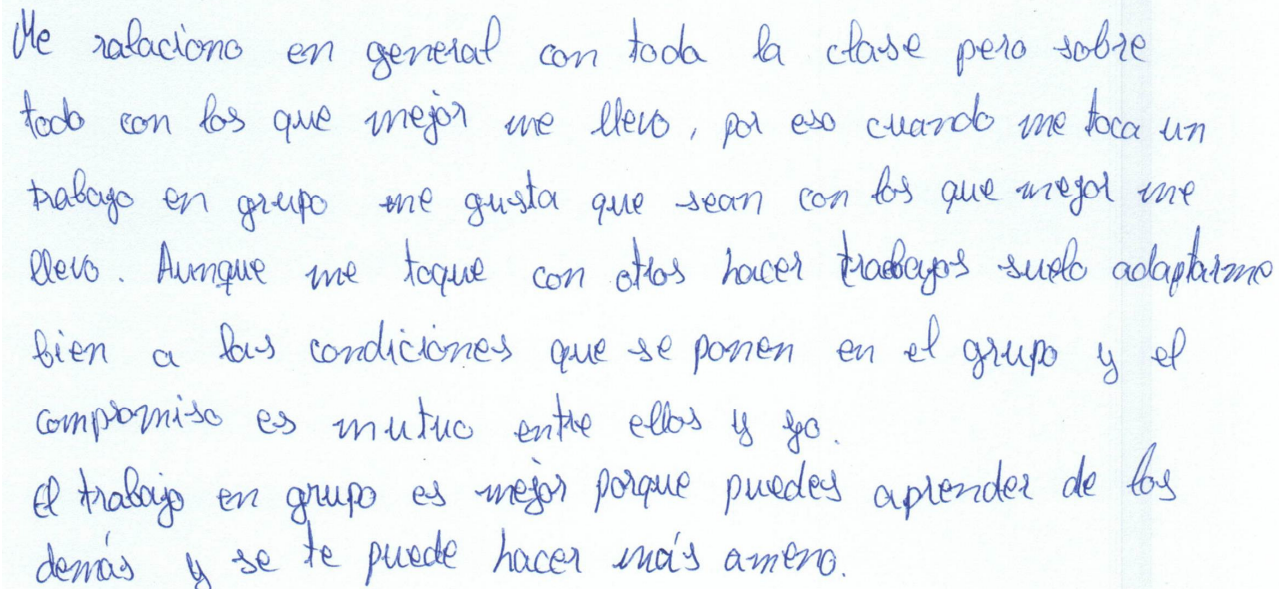 Me ralaciono en general con toda la clase pero sobre
todo con los que mejor me llevo, por eso cuando me toca un
trabajo en grupo me gusta que sean con los que mejor me
llevo. Aunque me toque con otros hacer trabajos suelo adaptarme
bien a las condiciones que se ponen en el grupo y el
compromiso es mutuo entre ellos y yo.
El trabajo en grupo es mejor porque puedes aprender de los
demás y se te puede hacer más ameno.